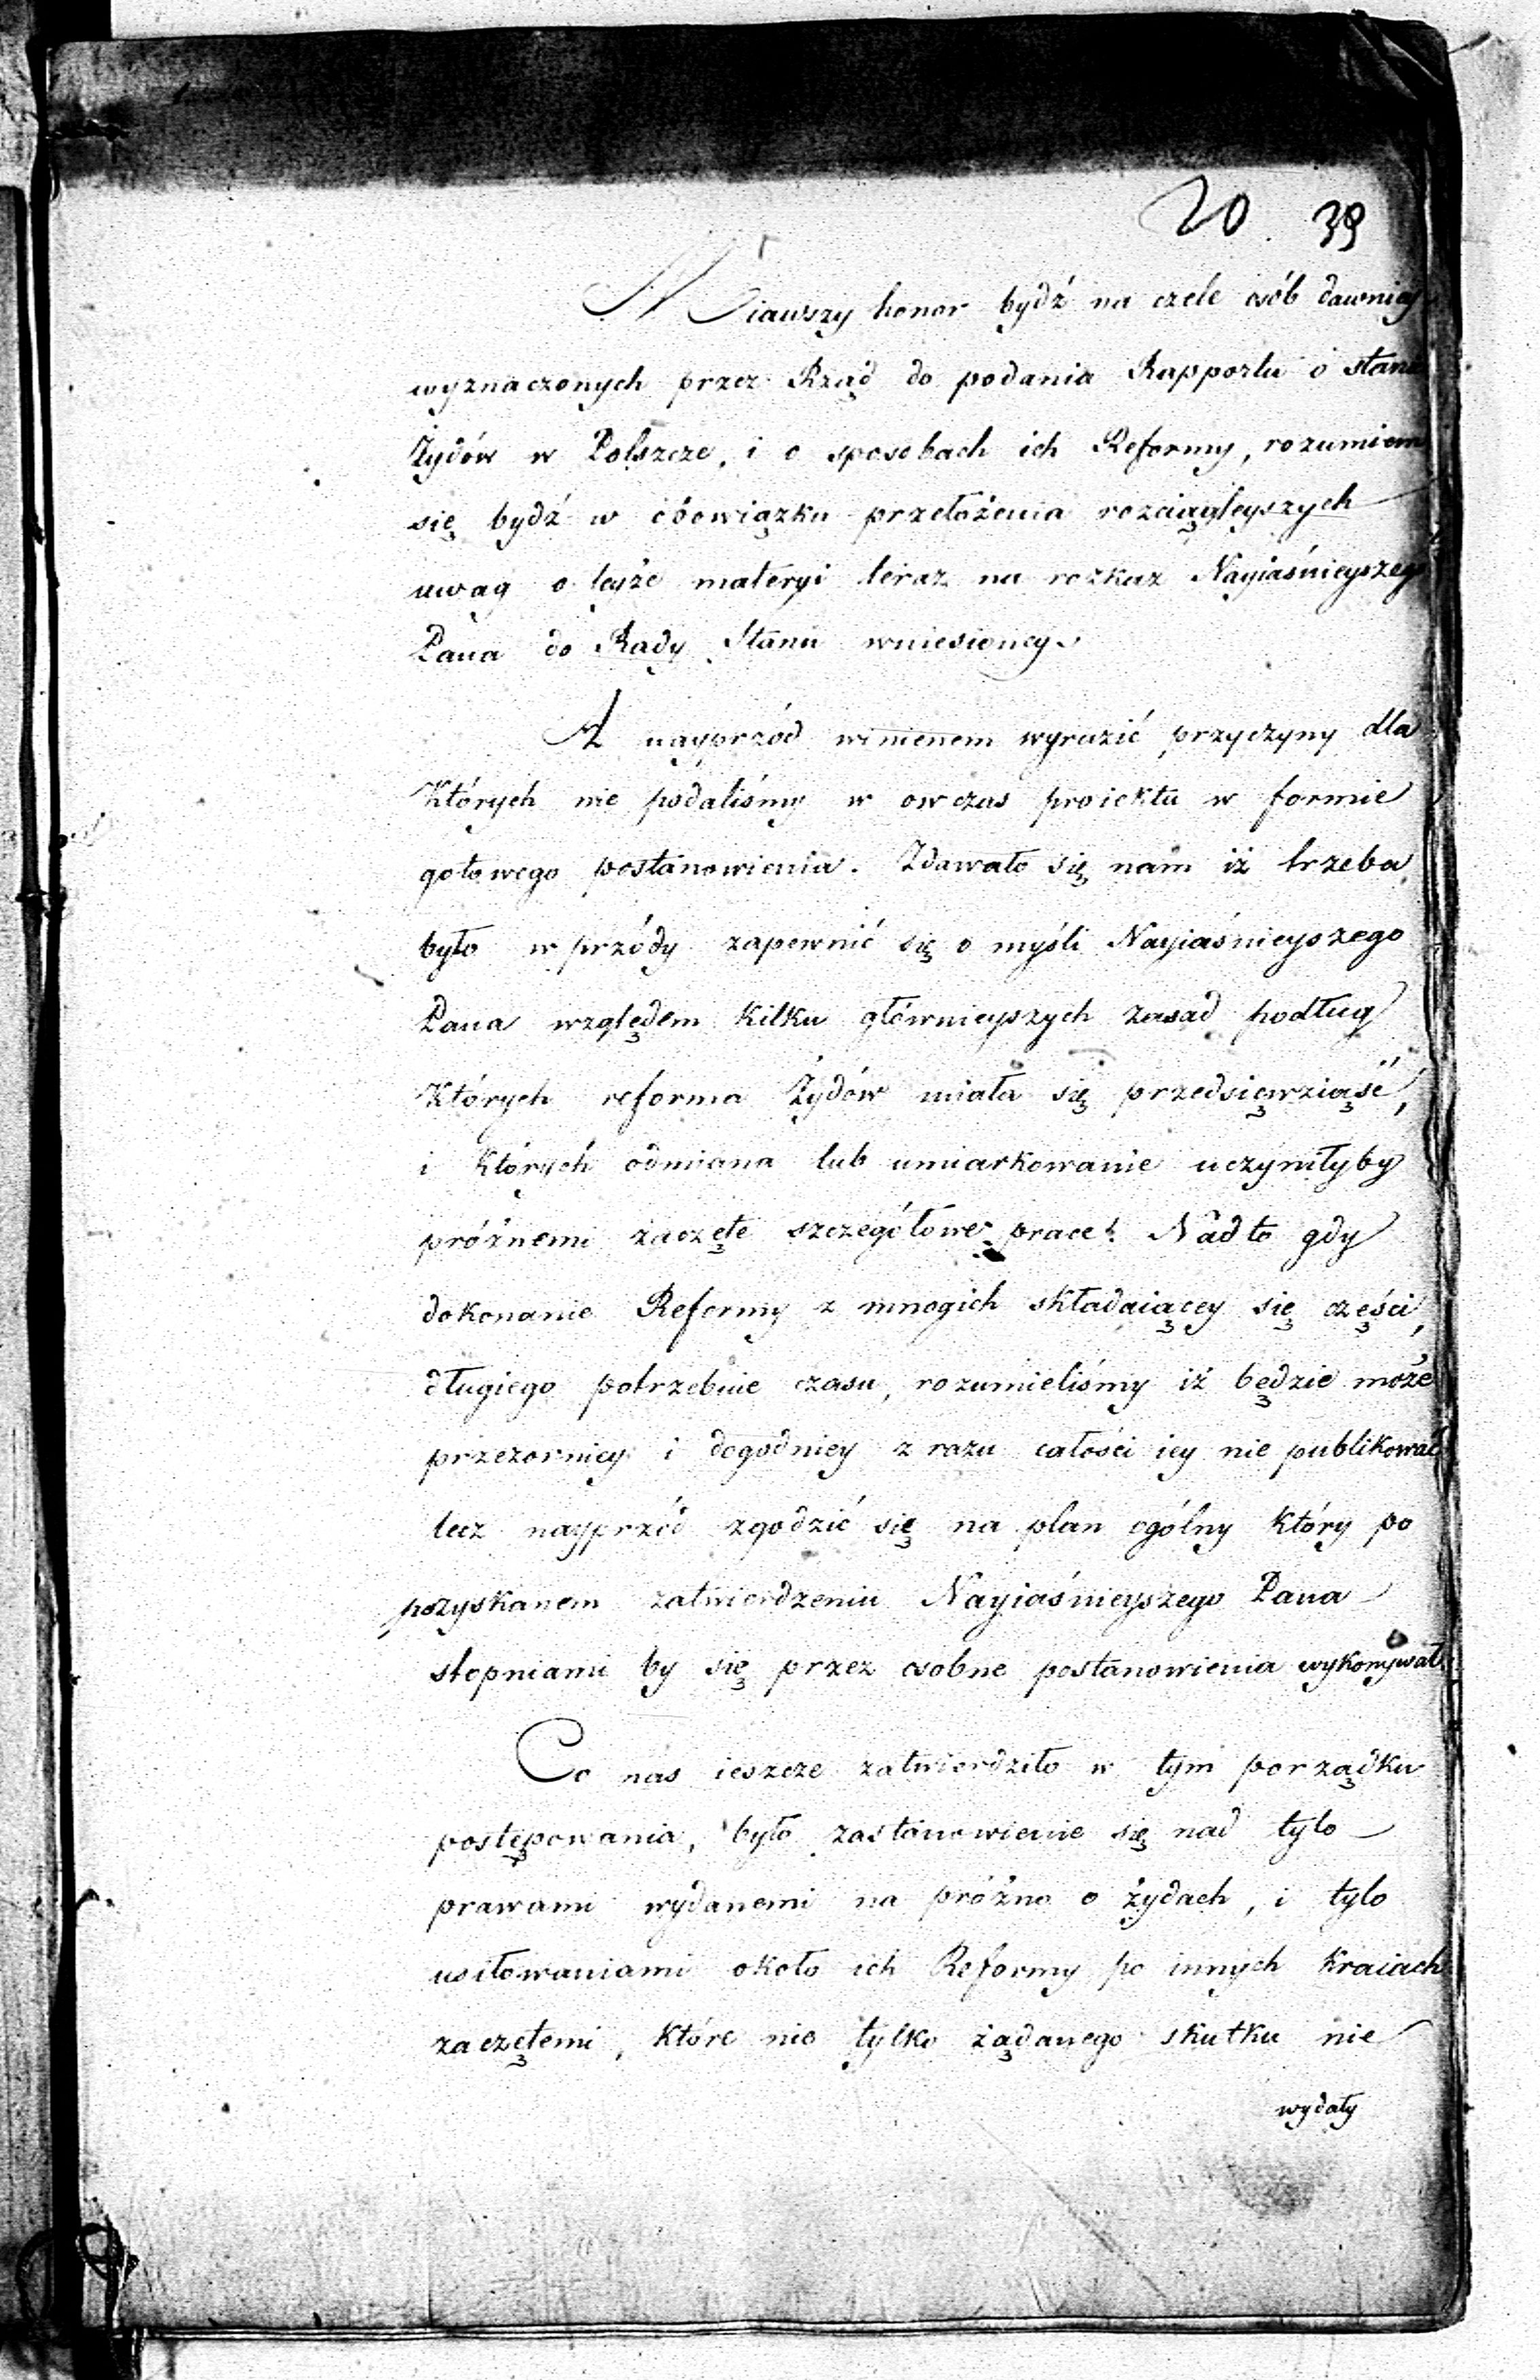 20. 39
Miawszy honor bydź na czele osób dawniey
wyznaczonych przez Rząd do podania Rapportu o stanie
Żydów w Polszcze, i o sposobach ich Reformy, rozumiem
się bydź w obowiązku przełożenia rozciągleyszych
uwag o teyże materyi teraz na rozkaz Nayiaśnieyszego
Pana do Rady Stanu wniesioney.
A nayprzód winienem wyrazić przyczyny dla
których nie podaliśmy w owczas proiektu w formie
gotowego postanowienia. Zdawało się nam iż trzeba
było w przódy zapewnić się o myśli Nayiaśnieyszego
Pana względem kilku głównieyszych zasad podług
których reforma Żydów miała się przedsięwziąść,
i których odmiana lub umiarkowanie uczyniłyby
próżnemi zaczęte szczegółowe prace. Nadto gdy
dokonanie Reformy z mnogich składaiącey się części,
długiego potrzebuie czasu, rozumieliśmy iż będzie może
przezorniey i dogodniey z razu całości iey nie publikować
lecz nayprzód zgodzić się na plan ogólny który po
pozyskanem zatwierdzeniu Nayiaśnieyszego Pana
stopniami by się przez osobne postanowienia wykonywał.
Co nas ieszcze zatwierdziło w tym porządku
postępowania, było zastanowienie się nad tylo
prawami wydanemi na próżno o żydach, i tylo
usiłowaniami około ich Reformy po innych kraiach
zaczętemi, które nie tylko żądanego skutku nie
wydały